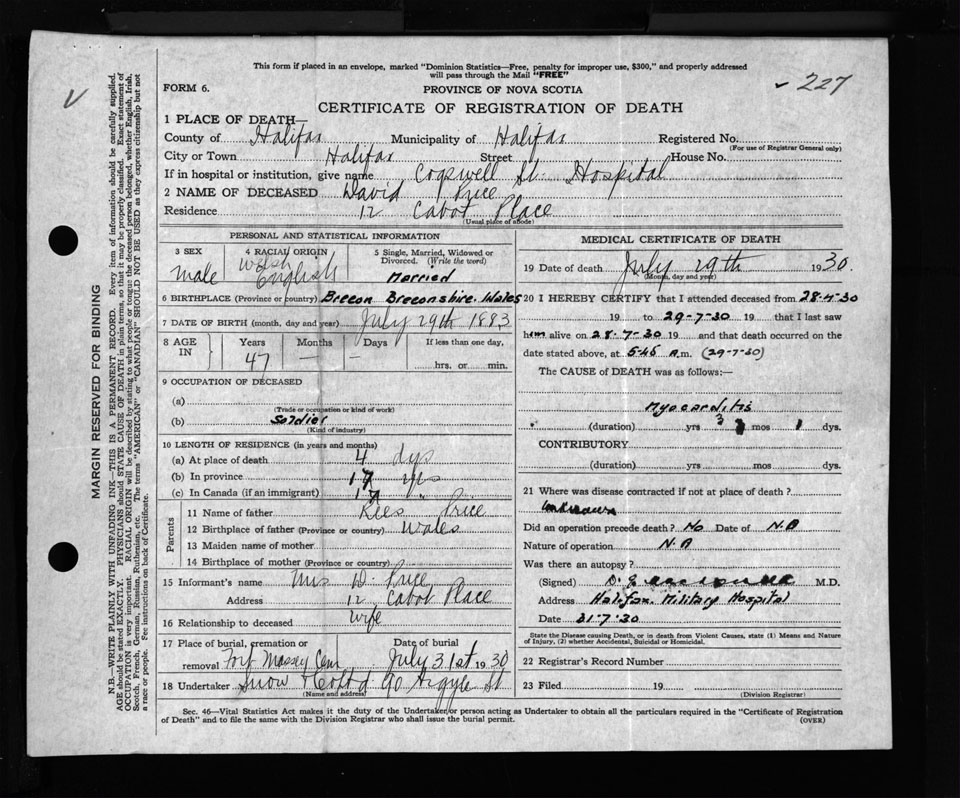 This form if placed in an envelope, marked "Dominion Statistics—Free, penalty for improper use, $300," and properly addressed
will pass through the Mail "FREE"
FORM 6.
PROVINCE OF NOVA SCOTIA
227
CERTIFICATE OF REGISTRATION OF DEATH
1 PLACE OF DEATH—
County of Halifax Municipality of Halifax Registered No.
(For use of Registrar General only)
City or Town Halifax Street House No.
If in hospital or institution, give name Cogswell St. Hospital
2 NAME OF DECEASED David Price
Residence 12 Cabot Place
(Usual place of abode)
PERSONAL AND STATISTICAL INFORMATION
3 SEX 4 RACIAL ORIGIN 5 Single, Married, Widowed or Divorced. (Write the word)
male Welsh English Married
6 BIRTHPLACE (Province or country) Brecon Breconshire. Wales
7 DATE OF BIRTH (month, day and year) July 29th 1883
8 AGE IN Years Months Days If less than one day,
47 — — hrs. or min.
9 OCCUPATION OF DECEASED
(a)
(Trade or occupation or kind of work)
(b) Soldier
(Kind of industry)
10 LENGTH OF RESIDENCE (in years and months)
(a) At place of death 4 dys
(b) In province 17 yrs
(c) In Canada (if an immigrant) 17 "
Parents
11 Name of father Rees Price
12 Birthplace of father (Province or country) Wales
13 Maiden name of mother
14 Birthplace of mother (Province or country)
15 Informant's name Mrs D. Price
Address 12 Cabot Place
16 Relationship to deceased Wife
17 Place of burial, cremation or removal Fort Massey Cem Date of burial July 31st 1930
18 Undertaker Snow & Co Ltd 90 Argyle St
(Name and address)
MEDICAL CERTIFICATE OF DEATH
19 Date of death July 29th 1930.
(Month, day and year)
20 I HEREBY CERTIFY that I attended deceased from 28-4-30
19 to 29-7-30 19 that I last saw
him alive on 28-7-30 19 and that death occurred on the
date stated above, at 5.45 A.m. (29-7-30)
The CAUSE of DEATH was as follows:—
Myocarditis
(duration) yrs 3 mos 1 dys.
CONTRIBUTORY
(duration) yrs mos dys.
21 Where was disease contracted if not at place of death?
Unknown
Did an operation precede death? No Date of N.A
Nature of operation N.A
Was there an autopsy?
(Signed) M.D.
Address Halifax Military Hospital
Date 31-7-30
State the Disease causing Death, or in death from Violent Causes, state (1) Means and Nature
of Injury, (2) whether Accidental, Suicidal or Homicidal.
22 Registrar's Record Number
23 Filed 19
(Division Registrar)
Sec. 46—Vital Statistics Act makes it the duty of the Undertaker or person acting as Undertaker to obtain all the particulars required in the "Certificate of Registration
of Death" and to file the same with the Division Registrar who shall issue the burial permit.
(OVER)
MARGIN RESERVED FOR BINDING
N.B.—WRITE PLAINLY WITH UNFADING INK—THIS IS A PERMANENT RECORD. Every item of information should be carefully supplied.
AGE should be stated EXACTLY. PHYSICIANS should STATE CAUSE OF DEATH in plain terms, so that it may be properly classified. Exact statement of
OCCUPATION is very important. RACIAL ORIGIN will be described by stating to what people or tongue the deceased person belonged, whether English, Irish,
Scotch, French, German, Russian, Ruthenian, etc. The terms "AMERICAN" or "CANADIAN" SHOULD NOT BE USED as they express citizenship but not
a race or people. See instructions on back of Certificate.